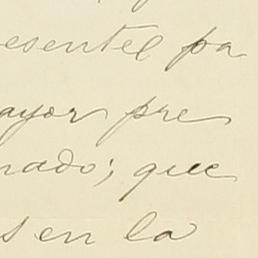 esentel pa
ayor pre
nado; que
s en la